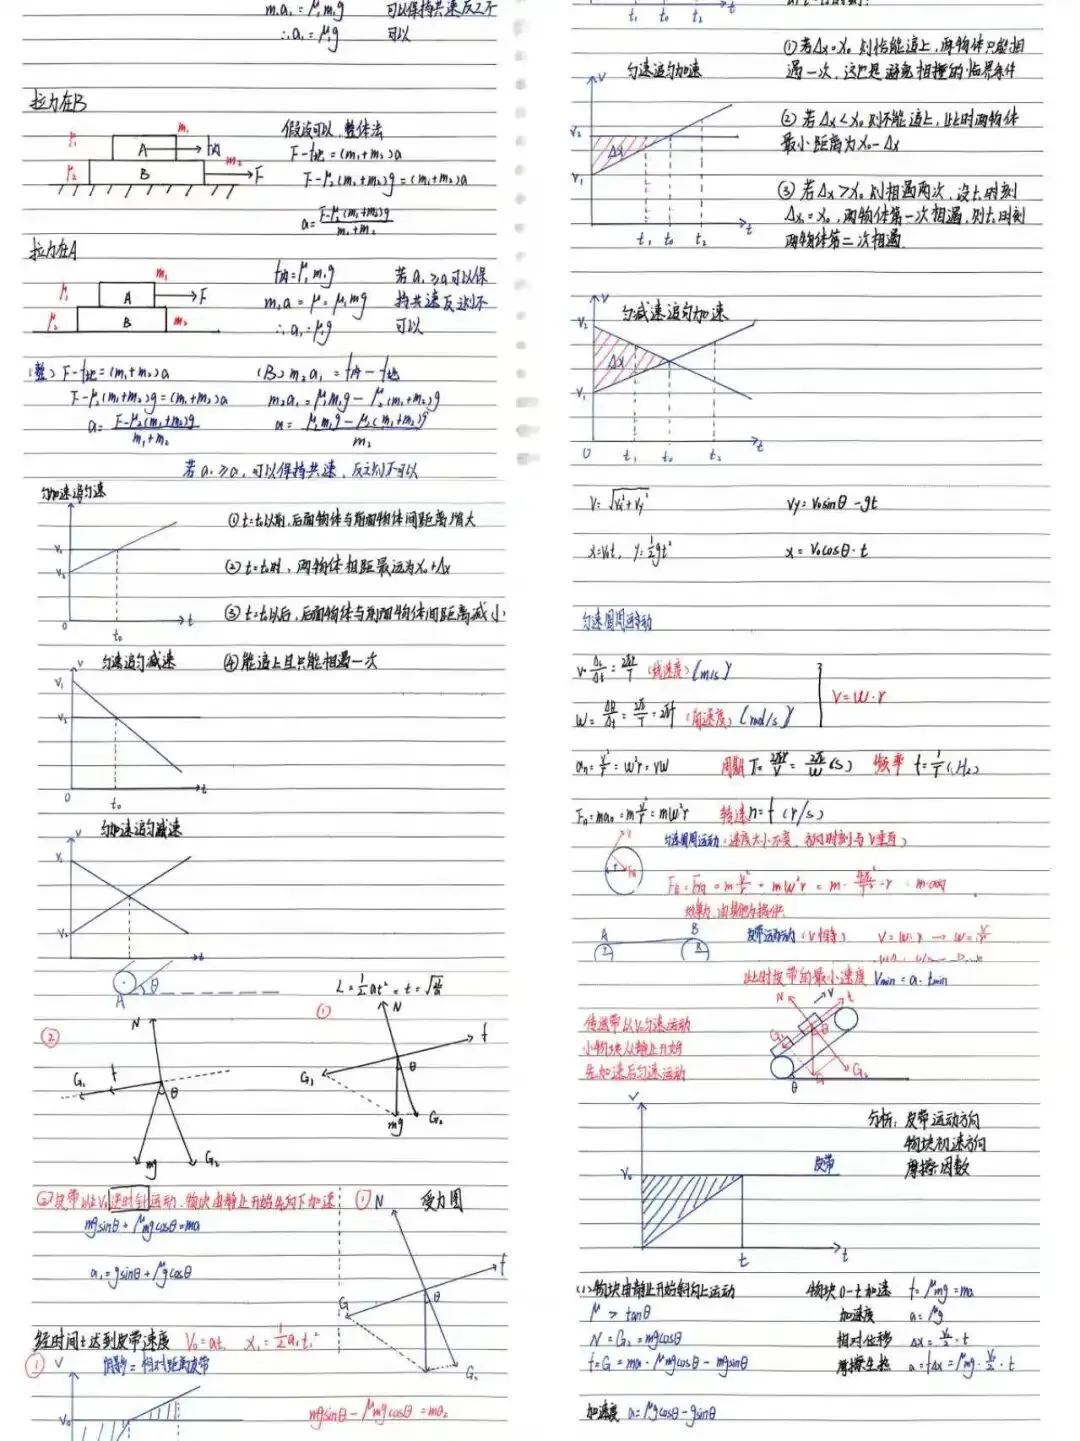 m₁a₁=μ₁m₁g 可以保持共速反之不
∴a₁=μ₁g 可以
拉力在B
μ₁ A m₁ f内
μ₂ B m₂ F
假设可以,整体法
F-f地=(m₁+m₂)a
F-μ₂(m₁+m₂)g=(m₁+m₂)a
a=F-μ₂(m₁+m₂)g/m₁+m₂
拉力在A
μ₁ A m₁ F
μ₂ B m₂
f内=μ₁m₁g 若a₁≥a可以保
持共速反之则不
∴a₁=μ₁g 可以
(整) F-f地=(m₁+m₂)a (B) m₂a₁=f内-f地
F-μ₂(m₁+m₂)g=(m₁+m₂)a m₂a₁=μ₁m₁g-μ₂(m₁+m₂)g
a=F-μ₂(m₁+m₂)g/m₁+m₂ a=μ₁m₁g-μ₂(m₁+m₂)g/m₂
若a₁≥a,可以保持共速,反之则不可以
匀加速追匀速
①t=t₀以前,后面物体与前面物体间距离增大
②t=t₀时,两物体相距最远为x₀+Δx
③t=t₀以后,后面物体与前面物体间距离减小
④能追上且只能相遇一次
0 t₀ t
匀速追匀减速
V
V₁
0 t₀ t
匀加速追匀减速
V
t
A θ
L=½at² = t=
②
N
G₁ f θ
mg G₂
①
N f
G₁ θ
mg G₂
②皮带以V₀逆时针运动,物块由静止开始先向下加速
mgsinθ+μmgcosθ=ma
a₁=gsinθ+μgcosθ
① N 受力图
f
θ
G₂
经时间t达到皮带速度 V₀=at₁ x₁=½a₁t₁²
① V 阴影=相对距离皮带
V₀
mgsinθ-μmgcosθ=ma₂
t₁ t₀ t₂ t
①若Δx=x₀,则恰能追上,两物体只能相
遇一次,这也是避免相撞的临界条件
②若Δx<x₀,则不能追上,此时两物体
最小距离为x₀-Δx
③若Δx>x₀,则相遇两次,设t₁时刻
Δx₁=x₀,两物体第一次相遇,则t₂时刻
两物体第二次相遇
匀速追匀加速
V
V₂
V₁
Δx
t₁ t₀ t₂ t
匀减速追匀加速
V
V₂
V₁
Δx
0 t₁ t₀ t₂ t
V=√Vx²+Vy² Vy=V₀sinθ-gt
x=V₀t, y=½gt² x=V₀cosθ·t
匀速圆周运动
V=Δl/Δt=2πr/T (线速度) (m/s)
W=Δθ/Δt=2π/T=2πf (角速度) (rad/s)
V=W·r
an=V²/r=W²r=VW 周期 T=2πr/V=2π/W (s) 频率 f=1/T (Hz)
Fn=man=mV²/r=mW²r 转速 n=f (r/s)
匀速圆周运动:速度大小不变,
mV²/r=mW²r=m·4π²/T²·r=m·
A B
皮带运动(V相等) V=W·r → W=V/r
此时皮带的最小速度 Vmin=a·tmin
传送带以V₀匀速运动
小物块从静止开始
先加速后匀速运动
N V f
G₁ θ
G G₂
θ
V
V₀
皮带
t t
分析: 皮带运动方向
物块初速方向
摩擦因数
(1)物块由静止开始斜向上运动
μ > tanθ
N=G₂=mgcosθ
f=G=ma·μmgcosθ-mgsinθ
加速度 a=μgcosθ-gsinθ
物块0-t加速 f=μmg=ma
加速度 a=μg
相对位移 Δx=V₀/2·t
摩擦生热 Q=fΔx=μmg·V₀/2·t